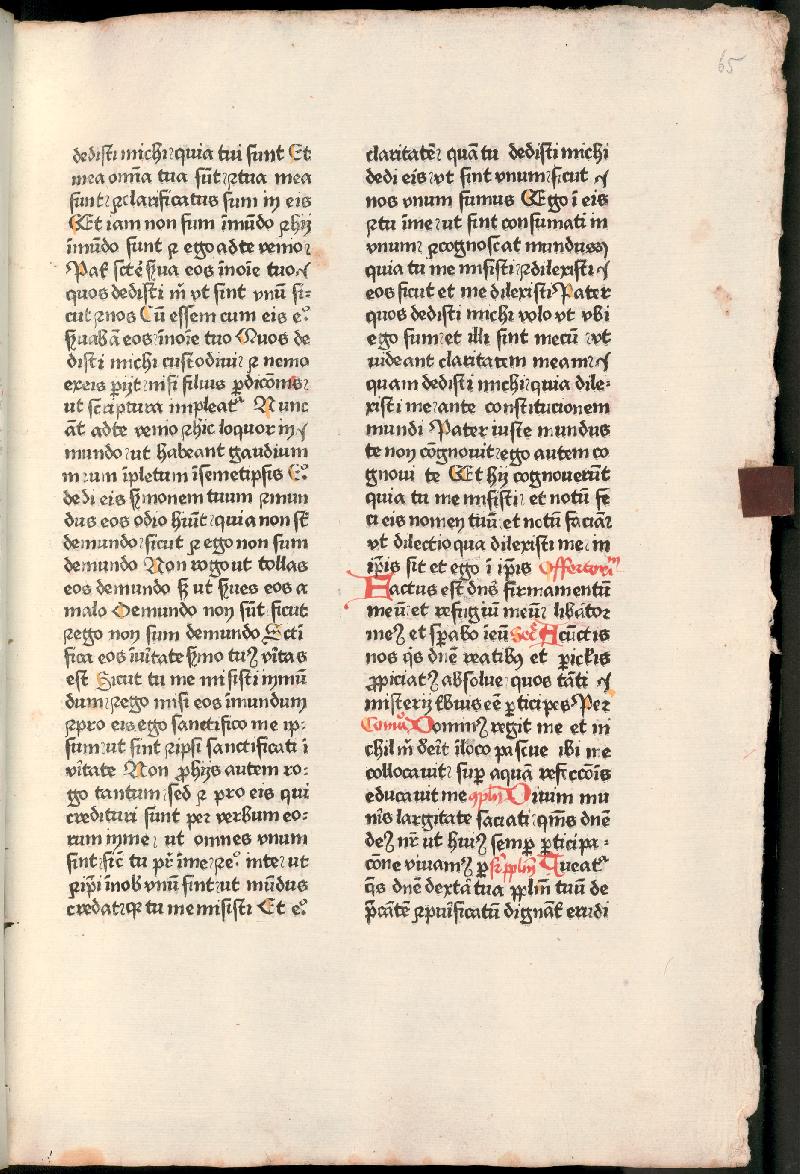 65
dedisti michi quia tui sunt Et
mea om̄ia tua sūt ⁊ tua mea
sunt ⁊ clarificatus sum in eis
Et iam non sum ī mūdo ⁊ hij
ī mūdo sunt ⁊ ego ad te venio
Pat̄ sctē s̄ua eos ī noīe tuo
quos dedisti m̄ vt sint vnū si-
cut ⁊ nos Cū essem cum eis e°
s̄uabā eos ī noīe tuo Quos de
disti michi custodiui ⁊ nemo
ex eis p̱ijt nisi filius p̱dicōnis
ut scriptura impleat᷑ Nunc
āt ad te venio ⁊ hic loquor in
mundo ut habeant gaudium
meum īpletum ī semetipsis E°
dedi eis s̄monem tuum ⁊ mun
dus eos odio hūit quia non st̄
de mundo sicut ⁊ ego non sum
de mundo Non rogo ut tollas
eos de mundo sꝫ ut s̄ues eos a
malo De mundo non sūt sicut
⁊ ego non sum de mundo Scti
fica eos ī v̄itate s̄mo tuꝰ v̄itas
est Sicut tu me misisti in mū
dum ⁊ ego misi eos ī mundum
⁊ pro eis ego sanctifico me ip-
sum ut sint ⁊ ipsi sanctificati ī
v̄itate Non ꝓ hijs autem ro-
go tantum sed ⁊ pro eis qui
credituri sunt per verbum eo-
rum in me ut omnes vnum
sint sic̄ tu pr̄ ī me ⁊ e° in te ut
⁊ ip̄i ī nob vnū sint ut mūdus
credat qꝛ tu me misisti Et e°
claritatē quā tu dedisti michi
dedi eis vt sint vnum sicut ⁊
nos vnum sumus Ego ī eis
⁊ tu ī me ut sint consumati in
vnum ⁊ cognoscat mundus
quia tu me misisti ⁊ dilexisti
eos sicut et me dilexisti Pater
quos dedisti michi volo vt vbi
ego sum et illi sint mecū vt
uideant claritatem meam
quam dedisti michi quia dile-
xisti me ante constitucionem
mundi Pater iuste mundus
te non cōgnouit ego autem co
gnoui te Et hij cognouerūt
quia tu me misisti et notū fe
ci eis nomen tuū et notū faciā
vt dilectio qua dilexisti me in
ip̄is sit et ego ī ip̄is Offertoriu᷒
Factus est dn̄s firmamentū
meū et refugiū meū libātor
meꝰ et sp̱abo ī eū Sec̄ A cūctis
nos q̄s dn̄e reatibꝰ et p̱icl̄is
ꝓpiciatꝰ absolue quos tāti
misterij tbuis eē p̱ticipes Per
Comūo Dominꝰ regit me et ni
chil m̄ deīt ī loco pascue ibi me
collocauit sup̱ aquā refeccōīs
educauit me 9pl̄n Diuini mu
n̄is largitate saciati q̄m̄s dn̄e
deꝰ nr̄ ut huiꝰ semp̱ p̱ticipa-
cōne viuamꝰ p̱ Sr̄ ppl̄m Tueat᷑
q̄s dn̄e dextā tua ppl̄m tuū de
p̄cātē ⁊ pu᷑ificatū dignāt̄ erudi